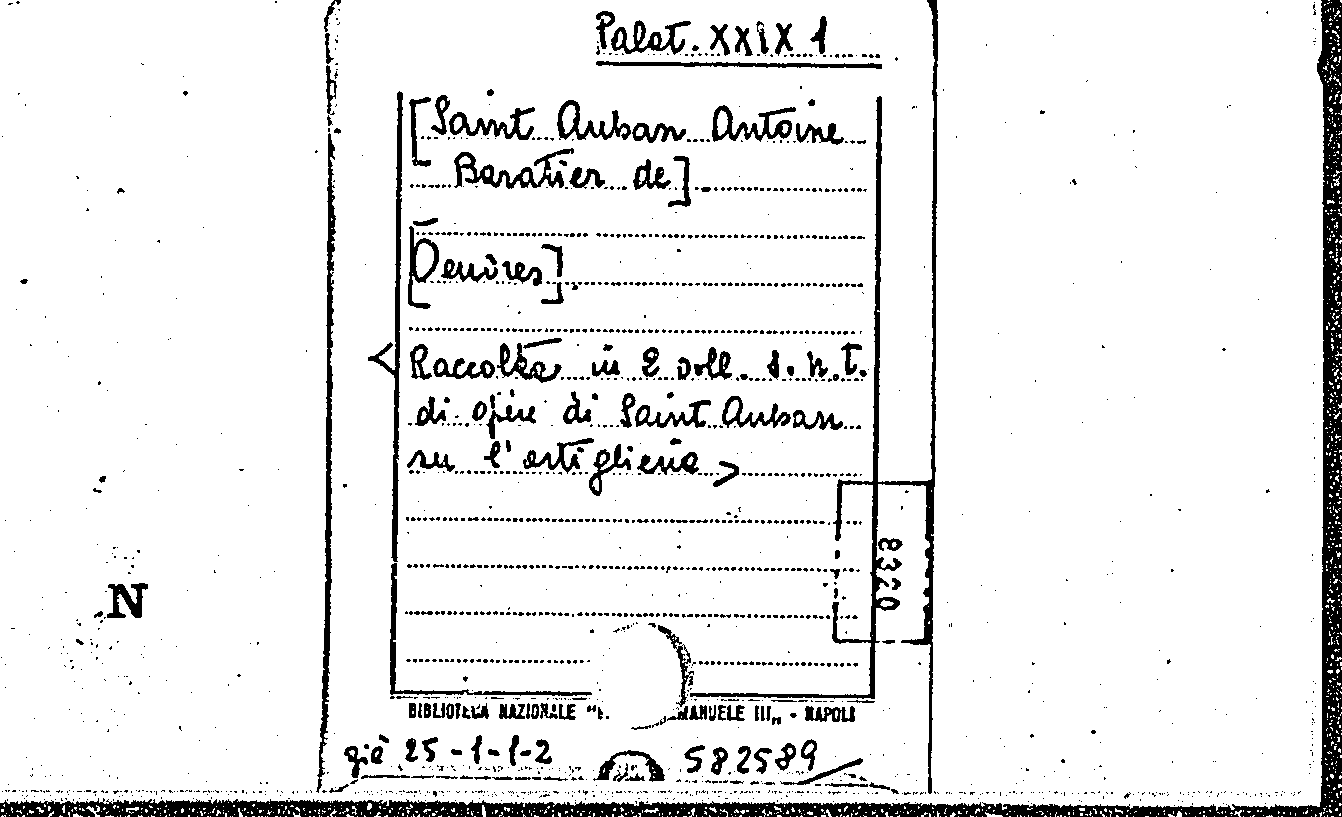 Palat. XXIX 1
[Saint Auban Antoine
Baratier de].
[Oeuvres].
< Raccolta in 2 voll. s.n.t.
di opere di Saint Auban
su l'artiglieria >
8320
N
BIBLIOTECA NAZIONALE "E. MANUELE III„ - NAPOLI
già 25-1-1-2 582589